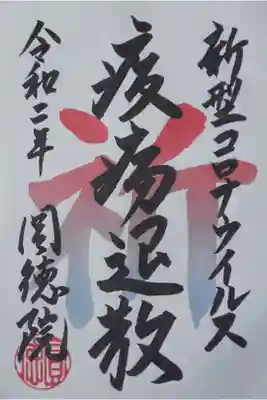 新型コロナウイルス
疫病退散
祈
令和二年
圓徳院